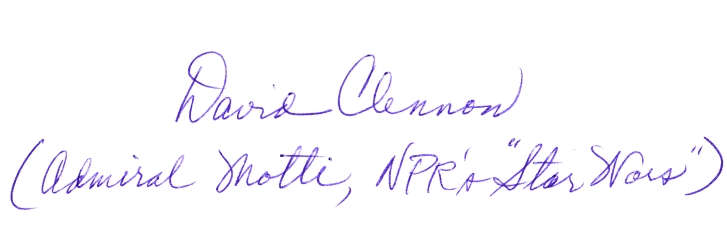 David Clennon
(Admiral Motti, NPR's "Star Wars")